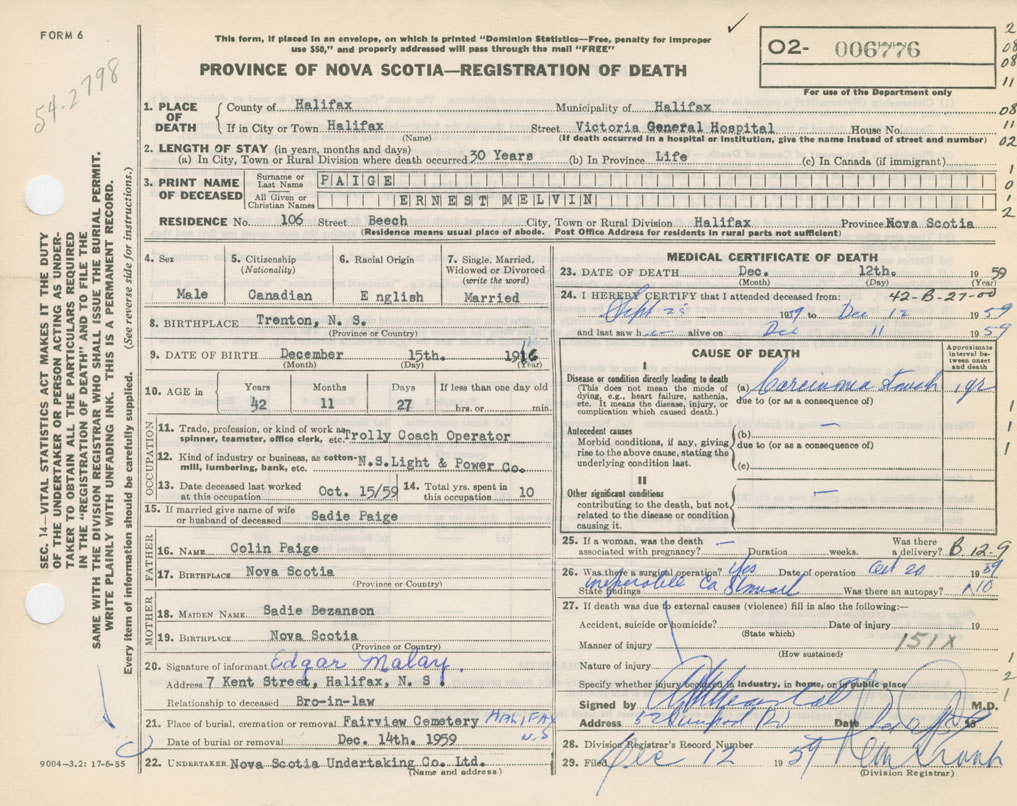 FORM 6
This form, if placed in an envelope, on which is printed "Dominion Statistics—Free, penalty for improper
use $50," and properly addressed will pass through the mail "FREE"
PROVINCE OF NOVA SCOTIA—REGISTRATION OF DEATH
O2- 006776
For use of the Department only
54.2798
SEC. 14—VITAL STATISTICS ACT MAKES IT THE DUTY
OF THE UNDERTAKER OR PERSON ACTING AS UNDER-
TAKER TO OBTAIN ALL THE PARTICULARS REQUIRED
IN THE "REGISTRATION OF DEATH" AND TO FILE THE
SAME WITH THE DIVISION REGISTRAR WHO SHALL ISSUE THE BURIAL PERMIT.
WRITE PLAINLY WITH UNFADING INK. THIS IS A PERMANENT RECORD.
Every item of information should be carefully supplied. (See reverse side for instructions.)
1. PLACE OF DEATH
County of Halifax Municipality of Halifax
If in City or Town Halifax Street Victoria General Hospital House No.
(Name) (If death occurred in a hospital or institution, give the name instead of street and number)
2. LENGTH OF STAY (in years, months and days)
(a) In City, Town or Rural Division where death occurred 30 Years (b) In Province Life (c) In Canada (if immigrant)
3. PRINT NAME OF DECEASED
Surname or Last Name PAIGE
All Given or Christian Names ERNEST MELVIN
RESIDENCE No. 106 Street Beech City, Town or Rural Division Halifax Province Nova Scotia
(Residence means usual place of abode. Post Office Address for residents in rural parts not sufficient)
4. Sex
Male
5. Citizenship (Nationality)
Canadian
6. Racial Origin
E nglish
7. Single, Married, Widowed or Divorced (write the word)
Married
8. BIRTHPLACE Trenton, N. S.
(Province or Country)
9. DATE OF BIRTH December 15th. 1916
(Month) (Day) (Year)
10. AGE in Years Months Days If less than one day old
42 11 27 hrs. or min.
OCCUPATION
11. Trade, profession, or kind of work as spinner, teamster, office clerk, etc. Trolly Coach Operator
12. Kind of industry or business, as cotton-mill, lumbering, bank, etc. N.S.Light & Power Co.
13. Date deceased last worked at this occupation Oct. 15/59
14. Total yrs. spent in this occupation 10
15. If married give name of wife or husband of deceased Sadie Paige
FATHER
16. NAME Colin Paige
17. BIRTHPLACE Nova Scotia
(Province or Country)
MOTHER
18. MAIDEN NAME Sadie Bezanson
19. BIRTHPLACE Nova Scotia
(Province or Country)
20. Signature of informant Edgar Malay.
Address 7 Kent Street, Halifax, N. S.
Relationship to deceased Bro-in-law
21. Place of burial, cremation or removal Fairview Cemetery HALIFAX N.S
Date of burial or removal Dec. 14th. 1959
22. UNDERTAKER Nova Scotia Undertaking Co. Ltd.
(Name and address)
9004—3.2: 17-6-55
MEDICAL CERTIFICATE OF DEATH
23. DATE OF DEATH Dec. 12th. 1959
(Month) (Day) (Year)
24. I HEREBY CERTIFY that I attended deceased from: 42-B-27-00
Sept 25 1959 to Dec 12 1959
and last saw h alive on Dec 11 1959
CAUSE OF DEATH
Approximate interval between onset and death
I
Disease or condition directly leading to death
(This does not mean the mode of dying, e.g., heart failure, asthenia, etc. It means the disease, injury, or complication which caused death.)
(a) Carcinoma Stomach 1 yr
due to (or as a consequence of)
Antecedent causes
Morbid conditions, if any, giving rise to the above cause, stating the underlying condition last.
(b) —
due to (or as a consequence of)
(c)
II
Other significant conditions
contributing to the death, but not related to the disease or condition causing it.
—
25. If a woman, was the death associated with pregnancy? — Duration weeks. Was there a delivery? B 12-9
26. Was there a surgical operation? Yes Date of operation Oct 20 1959
State findings inoperable Ca Stomach Was there an autopsy? no
27. If death was due to external causes (violence) fill in also the following:—
Accident, suicide or homicide? Date of injury 19
(State which)
Manner of injury 151X
(How sustained)
Nature of injury
Specify whether injury occurred in industry, in home, or in public place
Signed by M.D.
Address Date 19
28. Division Registrar's Record Number
29. Filed Dec 12 1959
(Division Registrar)